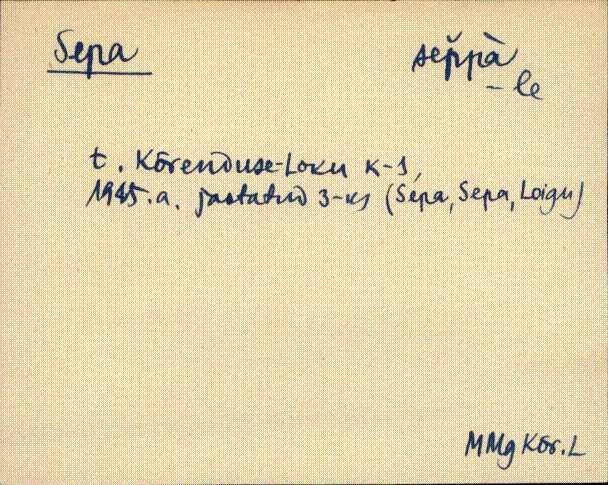 Sepa
sep̆pà
– le
t. Kõrenduse-Loku k-s,
1945.a. jaotatud 3-ks (Sepa, Sepa, Loigu)
MMg Kõr.L